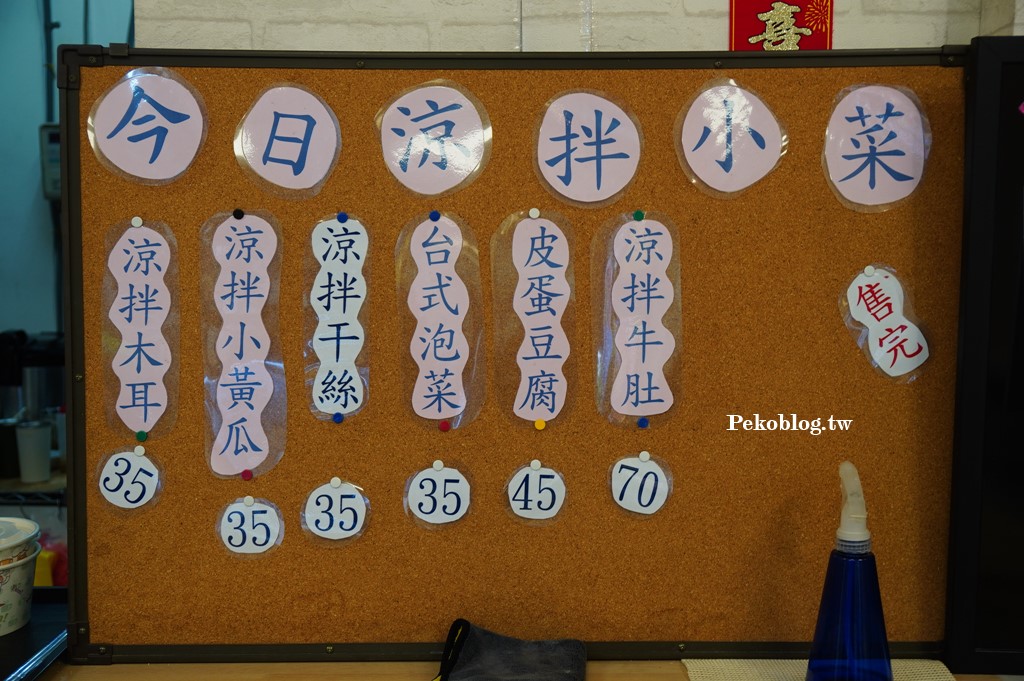 喜
今日涼拌小菜
涼拌木耳
35
涼拌小黃瓜
35
涼拌干絲
35
台式泡菜
35
皮蛋豆腐
45
涼拌牛肚
70
售完
Pekoblog.tw